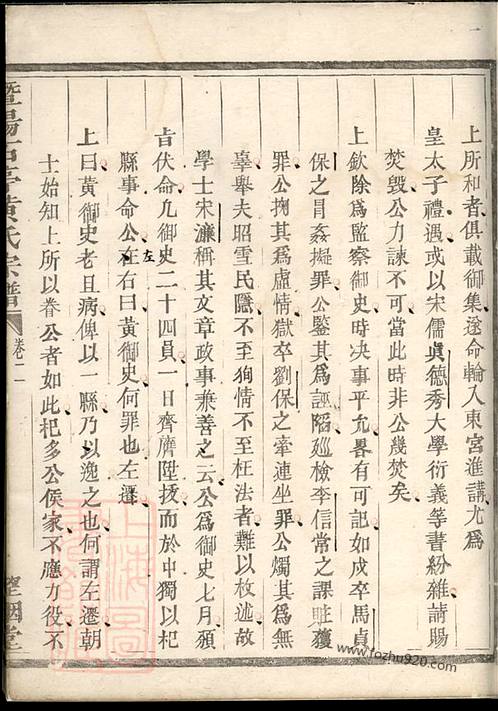 上所和者俱載御集遂命輪入東宮進講尤爲
皇太子禮遇或以宋儒眞德秀大學衍義等書紛雜請賜
焚毀公力諫不可當此時非公幾焚矣
上欽除爲監察御史時决事平允畧有可記如戍卒馬貞
保之冐姦擬罪公鑒其爲誣陷廵檢李信常之課賍獲
罪公掬其爲虛情獄卒劉保之牽連坐罪公燭其爲無
辜舉夫昭雪民隱不至狥情不至枉法者難以枚述故
學士宋濂稱其文章政事兼善之云公爲御史七月預
㫖伏命凢御史二十四員一日齊膺陞㧞而於中獨以杞
縣事命公在右曰黃御史何罪也左遷
左
上曰黃御史老且病俾以一縣乃以逸之也何謂左遷朝
士始知上所以眷公者如此杞多公侯家不應力役不
暨陽石亭黃氏宗譜 卷二
堂
上海圖
www.fozhu920.com